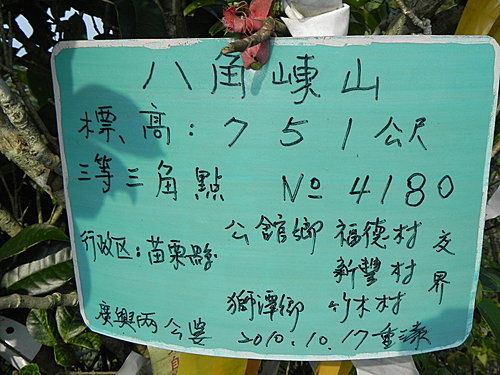 八角崠山
標高：751公尺
三等三角點 № 4180
行政区：苗栗縣 公館鄉 福德村 交界
新豐村
獅潭鄉 竹木村
廣興両公婆 2010.10.17